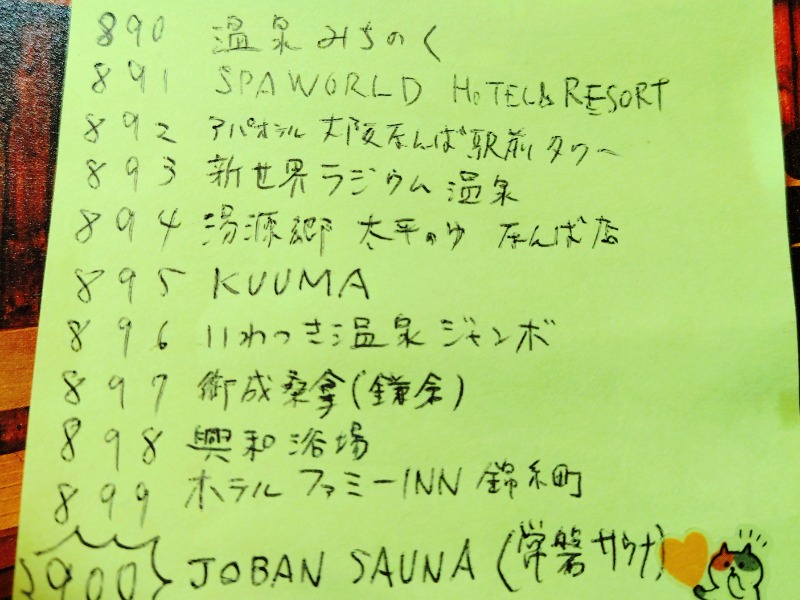 890 温泉みちのく
891 SPAWORLD HOTEL&RESORT
892 アパホテル 大阪なんば駅前タワー
893 新世界ラジウム温泉
894 湯源郷 太平のゆ なんば店
895 KUUMA
896 いわつき温泉ジャンボ
897 御成桑拿(鎌倉)
898 興和浴場
899 ホテル ファミーINN 錦糸町
900 JOBAN SAUNA (常磐サウナ)